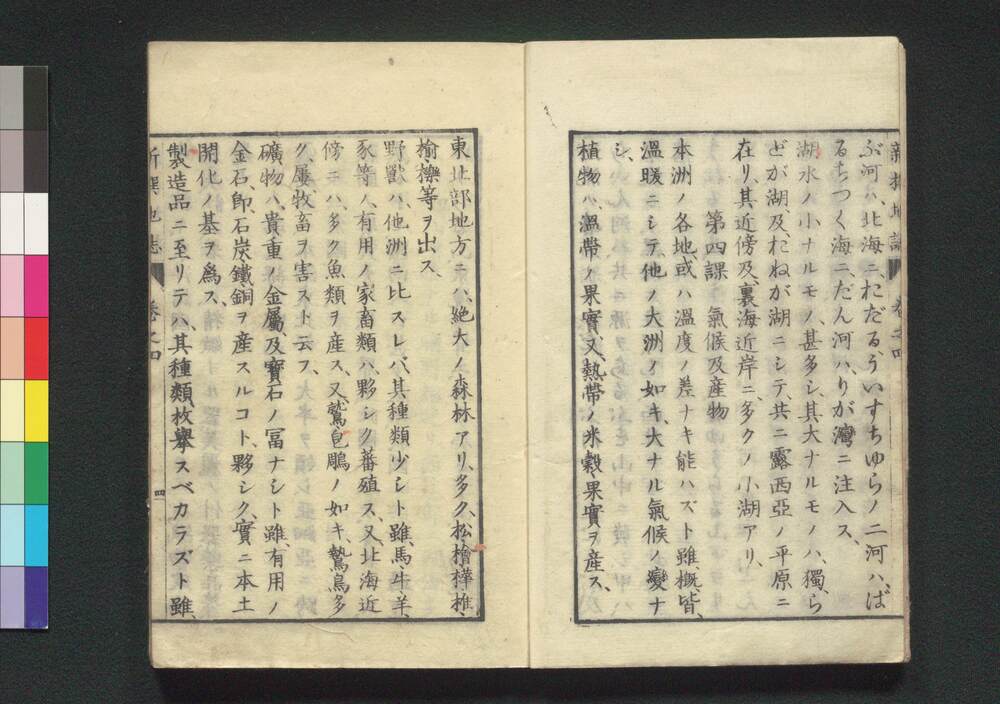 ぶ河ハ、北海ニ、れだるういすちゆらノ二河ハ、ば
るちつく海ニ、だん河ハ、りが灣ニ注入ス、
湖水ノ小ナルモノ、甚多シ、其大ナルモノハ、獨、ら
どが湖、及、たねが湖ニシテ、共ニ露西亞ノ平原ニ
在リ、其近傍及、裏海近岸ニ、多クノ小湖アリ、
第四課 氣候及産物
本洲ノ各地、或ハ溫度ノ差ナキ能ハズト雖、概皆、
溫暖ニシテ、他ノ大洲ノ如キ、大ナル氣候ノ變ナ
シ、
植物ハ、溫帶ノ果實、又、熱帶ノ米穀、果實ヲ産ス、
東北部地方ニハ、絶大ノ森林アリ、多ク、松檜樺椎、
楡櫟等ヲ出ス、
野獸ハ、他洲ニ比スレバ、其種類少シト雖、馬、牛、羊、
豕等ノ、有用ノ家畜類ハ、夥シク蕃殖ス、又、北海近
傍ニハ、多ク魚類ヲ産ス、又、鷲皀鵰ノ如キ、鷙鳥多
ク、屢、牧畜ヲ害スト云フ、
礦物ハ、貴重ノ金屬、及、寶石ノ冨ナシト雖、有用ノ
金石、卽、石炭、鐵、銅ヲ産スルコト、夥シク、實ニ本土
開化ノ基ヲ爲ス、
製造品ニ至リテハ、其種類、枚擧スベカラズト雖、
新撰地誌 卷之四 四